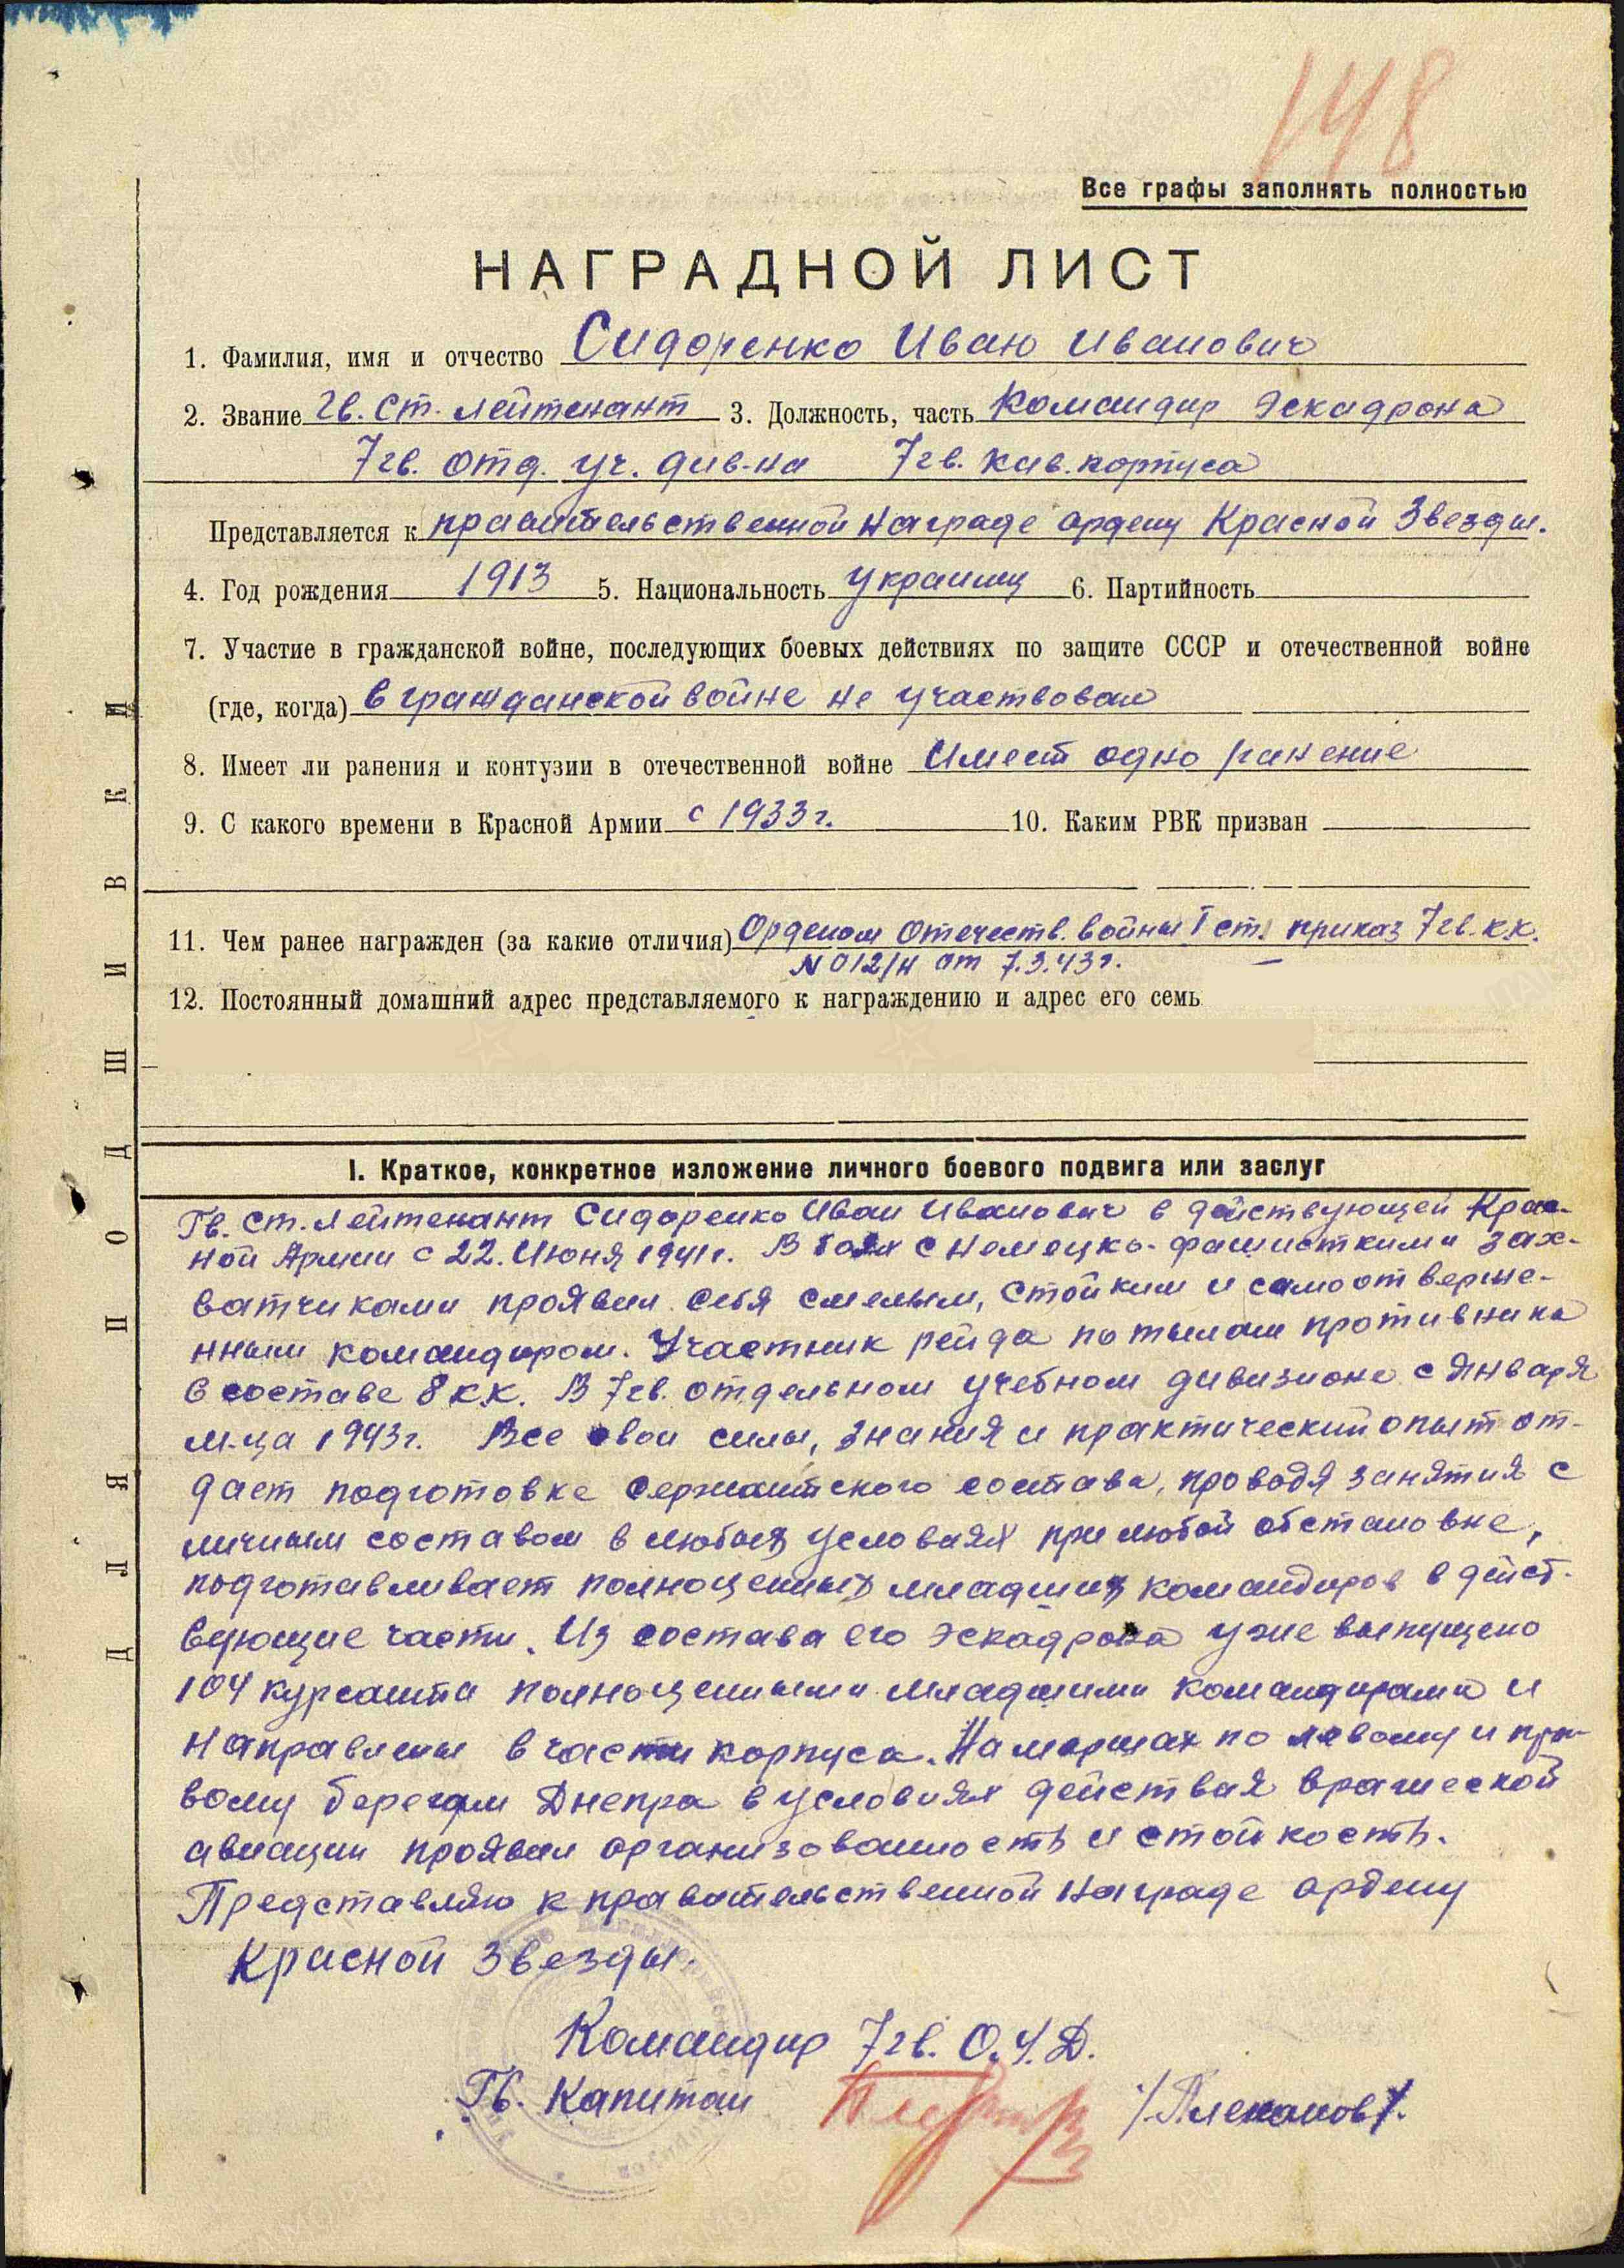 148
Все графы заполнять полностью
НАГРАДНОЙ ЛИСТ
1. Фамилия, имя и отчество Сидоренко Иван Иванович
2. Звание гв. ст. лейтенант 3. Должность, часть Командир эскадрона
7 гв. отд. уч. див-на 7 гв. кав. корпуса
Представляется к правительственной награде ордену Красной Звезды.
4. Год рождения 1913 5. Национальность украинец 6. Партийность
7. Участие в гражданской войне, последующих боевых действиях по защите СССР и отечественной войне
(где, когда) в гражданской войне не участвовал
8. Имеет ли ранения и контузии в отечественной войне Имеет одно ранение
9. С какого времени в Красной Армии с 1933 г. 10. Каким РВК призван
11. Чем ранее награжден (за какие отличия) Орденом Отечеств. войны I ст. приказ 7 гв. к.к.
N 012/н от 7.3.43 г.
12. Постоянный домашний адрес представляемого к награждению и адрес его семь
I. Краткое, конкретное изложение личного боевого подвига или заслуг
Гв. ст. лейтенант Сидоренко Иван Иванович в действующей Крас-
ной Армии с 22. Июня 1941 г. В боях с немецко-фашисткими зах-
ватчиками проявил себя смелым, стойким и самоотверже-
нным командиром. Участник рейда по тылам противника
в составе 8 к.к. В 7 гв. отдельном учебном дивизионе с января
м-ца 1943 г. Все свои силы, знания и практический опыт от-
дает подготовке сержантского состава, проводя занятия с
личным составом в любых условиях при любой обстановке,
подготавливает полноценных младших командиров в дейст-
вующие части. Из состава его эскадрона уже выпущено
104 курсанта полноценными младшими командирами и
направлены в части корпуса. На маршах по левому и пра-
вому берегам Днепра в условиях действия вражеской
авиации проявил организованность и стойкость.
Представляю к правительственной награде ордену
Красной Звезды.
Командир 7 гв. О.У.Д.
Гв. Капитан /Плеханов/.
ДЛЯ ПОДШИВКИ